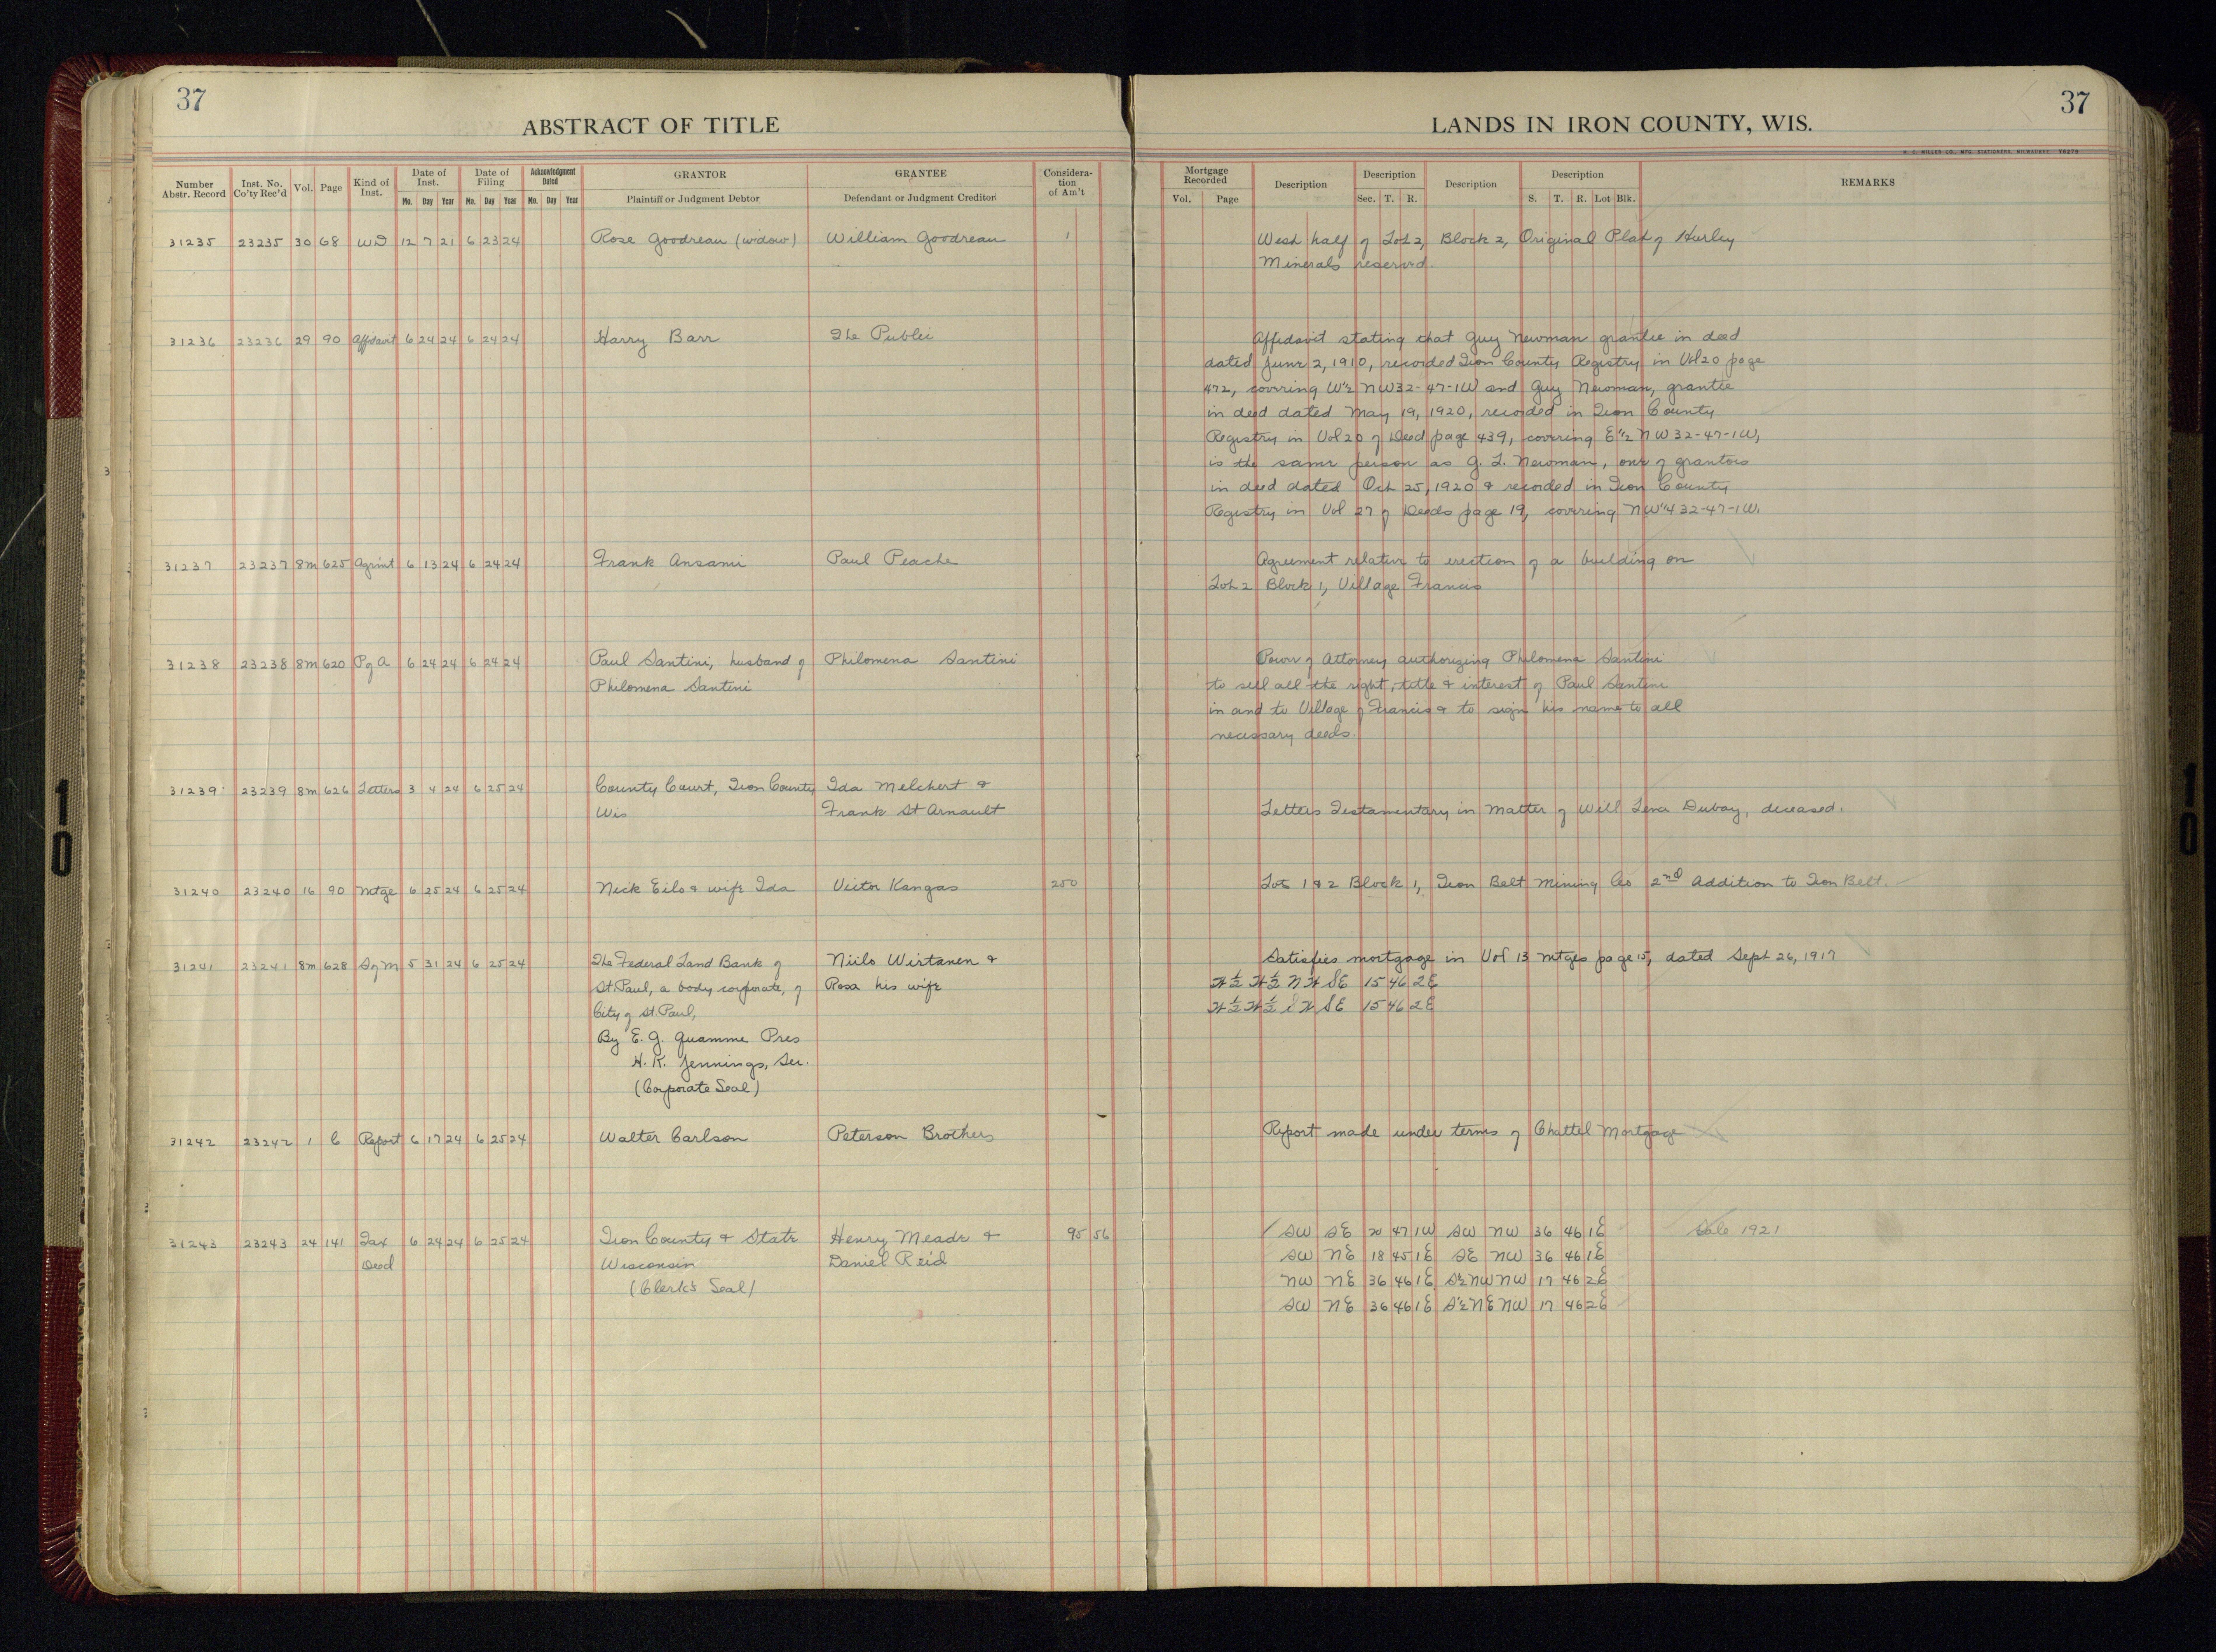 37
37
ABSTRACT OF TITLE
LANDS IN IRON COUNTY, WIS.
Number Abstr. Record
Inst. No. Co'ty Rec'd
Vol.
Page
Kind of Inst.
Date of Inst.
Mo. Day Year
Date of Filing
Mo. Day Year
Acknowledgment Dated
Mo. Day Year
GRANTOR
Plaintiff or Judgment Debtor
GRANTEE
Defendant or Judgment Creditor
Considera-
tion
of Am't
Mortgage Recorded
Vol. Page
Description
Description
Sec. T. R.
Description
Description
S. T. R. Lot Blk.
REMARKS
31235 23235 30 68 WD 12 7 21 6 23 24 Rose Goodreau (widow) William Goodreau 1 West half of Lot 2, Block 2, Original Plat of Hurley
Minerals reserved.
31236 23236 29 90 Affidavit 6 24 24 6 24 24 Harry Barr The Public Affidavit stating that Guy Newman grantee in deed
dated June 2, 1910, recorded Iron County Registry in Vol 20 page
472, covering W½ NW 32-47-1W and Guy Newman, grantee
in deed dated May 19, 1920, recorded in Iron County
Registry in Vol 20 of Deed page 439, covering E½ NW 32-47-1W,
is the same person as G. L. Newman, one of grantors
in deed dated Oct 25, 1920 & recorded in Iron County
Registry in Vol 27 of Deeds page 19, covering NW¼ 32-47-1W.
31237 23237 8m 625 Agrmt 6 13 24 6 24 24 Frank Ansami Paul Peache Agreement relative to erection of a building on
Lot 2 Block 1, Village Francis
31238 23238 8m 620 P of A 6 24 24 6 24 24 Paul Santini, husband of Philomena Santini Power of Attorney authorizing Philomena Santini
Philomena Santini to sell all the right, title & interest of Paul Santini
in and to Village of Francis & to sign his name to all
necessary deeds.
31239 23239 8m 626 Letters 3 4 24 6 25 24 County Court, Iron County Ida Melchert &
Wis Frank St Arnault Letters Testamentary in Matter of Will Lena Dubay, deceased.
31240 23240 16 90 Mtge 6 25 24 6 25 24 Nick Eilo & wife Ida Victor Kangas 250 Lots 1 & 2 Block 1, Iron Belt Mining Co 2nd Addition to Iron Belt.
31241 23241 8m 628 S of M 5 31 24 6 25 24 The Federal Land Bank of Niilo Wirtanen & Satisfies mortgage in Vol 13 mtges page 15, dated Sept 26, 1917
St. Paul, a body corporate, of Rosa his wife W½ W½ NW SE 15 46 2E
City of St. Paul, W½ W½ SW SE 15 46 2E
By E. G. Quamme Pres
H. K. Jennings, Sec.
(Corporate Seal)
31242 23242 1 C Report 6 17 24 6 25 24 Walter Carlson Peterson Brothers Report made under terms of Chattel Mortgage
31243 23243 24 141 Tax 6 24 24 6 25 24 Iron County & State Henry Meade & 95 56 SW SE 20 47 1W SW NW 36 46 1E Sale 1921
Deed Wisconsin Daniel Reid SW NE 18 45 1E SE NW 36 46 1E
(Clerk's Seal) NW NE 36 46 1E, S½ NW NW 17 46 2E
SW NE 36 46 1E S½ NE NW 17 46 2E
10
10